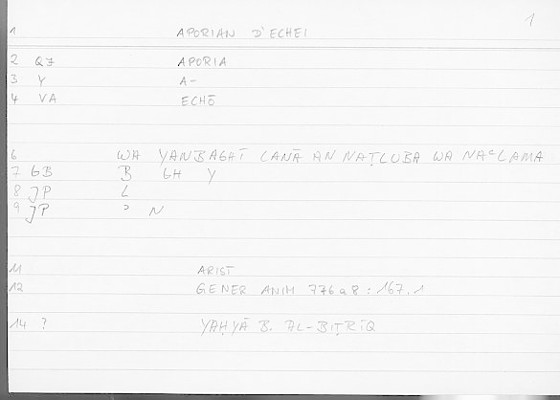 1
1 APORIAN D'ECHEI
2 QZ APORIA
3 Y A-
4 VA ECHŌ
6 WA YANBAGHĪ LANĀ AN NAṬLUBA WA NAʿLAMA
7 GB B GH Y
8 JP L
9 JP ʾ N
11 ARIST
12 GENER ANIM 776a8: 167,1
14 ? YAḤYĀ B. AL-BIṬRĪQ